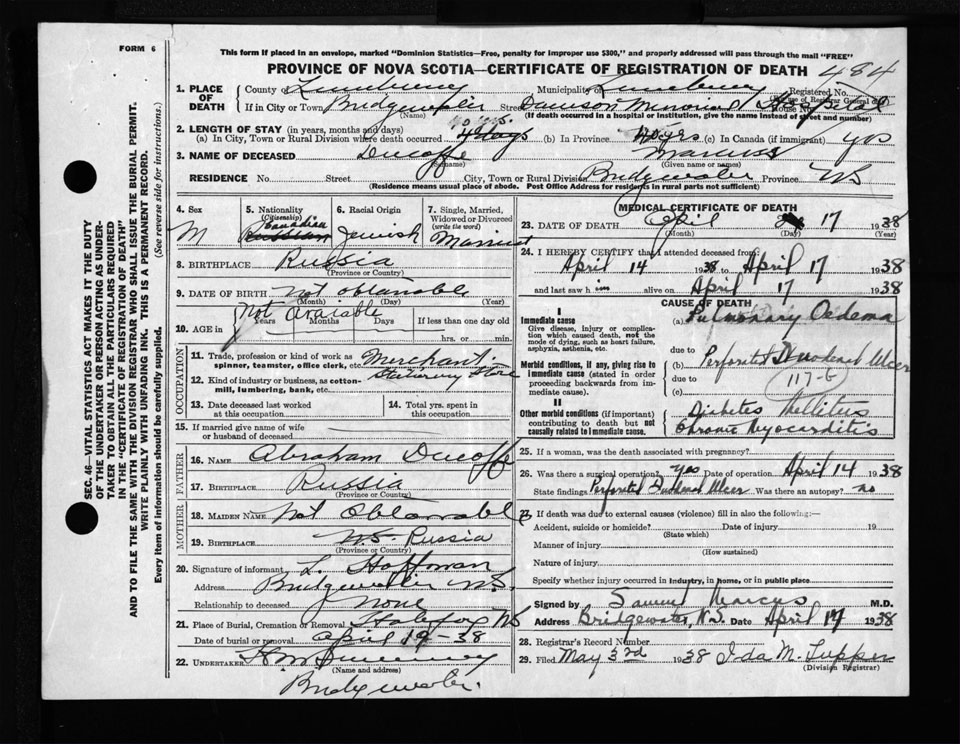 FORM 6
This form if placed in an envelope, marked "Dominion Statistics—Free, penalty for improper use $300," and properly addressed will pass through the mail "FREE"
PROVINCE OF NOVA SCOTIA—CERTIFICATE OF REGISTRATION OF DEATH 484
1. PLACE OF DEATH
County of Lunenburg Municipality of Lunenburg Registered No.
(Use of Registrar General only)
If in City or Town Bridgewater Street Dawson Memorial Hospital House No.
(Name) (If death occurred in a hospital or institution, give the name instead of street and number)
2. LENGTH OF STAY (in years, months and days)
(a) In City, Town or Rural Division where death occurred 40 yrs. 4 days (b) In Province 40 yrs (c) In Canada (if immigrant) yrs
3. NAME OF DECEASED Ducoffe Marcus
(Surname) (Given name or names)
RESIDENCE No. Street City, Town or Rural Division Bridgewater Province NS
(Residence means usual place of abode. Post Office Address for residents in rural parts not sufficient)
4. Sex M
5. Nationality (Citizenship) Canadian
6. Racial Origin Jewish
7. Single, Married, Widowed or Divorced (write the word) Married
8. BIRTHPLACE Russia
(Province or Country)
9. DATE OF BIRTH Not obtanable
(Month) (Day) (Year)
10. AGE in Not Avaible
Years Months Days If less than one day old
hrs. or min.
OCCUPATION
11. Trade, profession or kind of work as spinner, teamster, office clerk, etc. Merchant
12. Kind of industry or business, as cotton-mill, lumbering, bank, etc. Stationery Store
13. Date deceased last worked at this occupation
14. Total yrs. spent in this occupation
15. If married give name of wife or husband of deceased
FATHER
16. NAME Abraham Ducoffe
17. BIRTHPLACE Russia
(Province or Country)
MOTHER
18. MAIDEN NAME Not Obtanable
19. BIRTHPLACE Russia
(Province or Country)
20. Signature of informant L. Hoffman
Address Bridgewater N.S.
Relationship to deceased None
21. Place of Burial, Cremation or Removal Halifax NS
Date of burial or removal April 19-38
22. UNDERTAKER
(Name and address)
Bridgewater.
MEDICAL CERTIFICATE OF DEATH
23. DATE OF DEATH April 17 1938
(Month) (Day) (Year)
24. I HEREBY CERTIFY that I attended deceased from:
April 14 1938 to April 17 1938
and last saw him alive on April 17 1938
CAUSE OF DEATH
I
Immediate cause
Give disease, injury or complication which caused death, not the mode of dying, such as heart failure, asphyxia, asthenia, etc.
(a) Pulmonary Oedema
due to
Morbid conditions, if any, giving rise to immediate cause (stated in order proceeding backwards from immediate cause).
(b) Perforated Duodenal Ulcer
due to 117-b
(c)
II
Other morbid conditions (if important) contributing to death but not causally related to immediate cause.
Diabetes Mellitus
Chronic Myocarditis
25. If a woman, was the death associated with pregnancy?
26. Was there a surgical operation? yes Date of operation April 14 1938
State findings Perforated Duodenal Ulcer Was there an autopsy? no
27. If death was due to external causes (violence) fill in also the following:—
Accident, suicide or homicide? Date of injury 19
(State which)
Manner of injury
(How sustained)
Nature of injury
Specify whether injury occurred in industry, in home, or in public place
Signed by Samuel Marcus M.D.
Address Bridgewater, N.S. Date April 17 1938
28. Registrar's Record Number
29. Filed May 3rd 1938 Ida M. Tupper
(Division Registrar)
SEC. 46—VITAL STATISTICS ACT MAKES IT THE DUTY
OF THE UNDERTAKER OR PERSON ACTING AS UNDER-
TAKER TO OBTAIN ALL THE PARTICULARS REQUIRED
IN THE "CERTIFICATE OF REGISTRATION OF DEATH"
AND TO FILE THE SAME WITH THE DIVISION REGISTRAR WHO SHALL ISSUE THE BURIAL PERMIT.
WRITE PLAINLY WITH UNFADING INK. THIS IS A PERMANENT RECORD.
Every item of information should be carefully supplied. (See reverse side for instructions.)